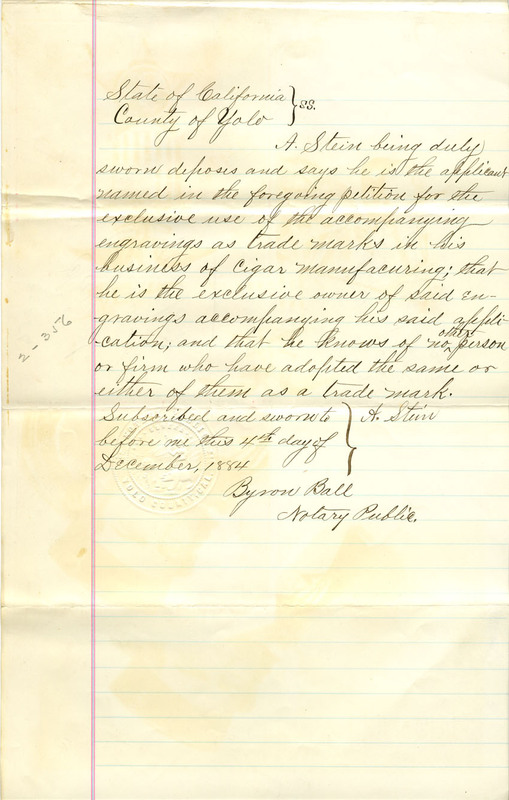 State of California } ss.
County of Yolo
A. Stein being duly
sworn deposes and says he is the applicant
named in the foregoing petition for the
exclusive use of the accompanying
engravings as trade marks in his
business of cigar manufacuring; that
he is the exclusive owner of said en-
gravings accompanying his said appli-
-cation; and that he knows of no other person
or firm who have adopted the same or
either of them as a trade mark.
Subscribed and sworn to } A. Stein
before me this 4th day of
December, 1884
Byron Ball
Notary Public.
2-356